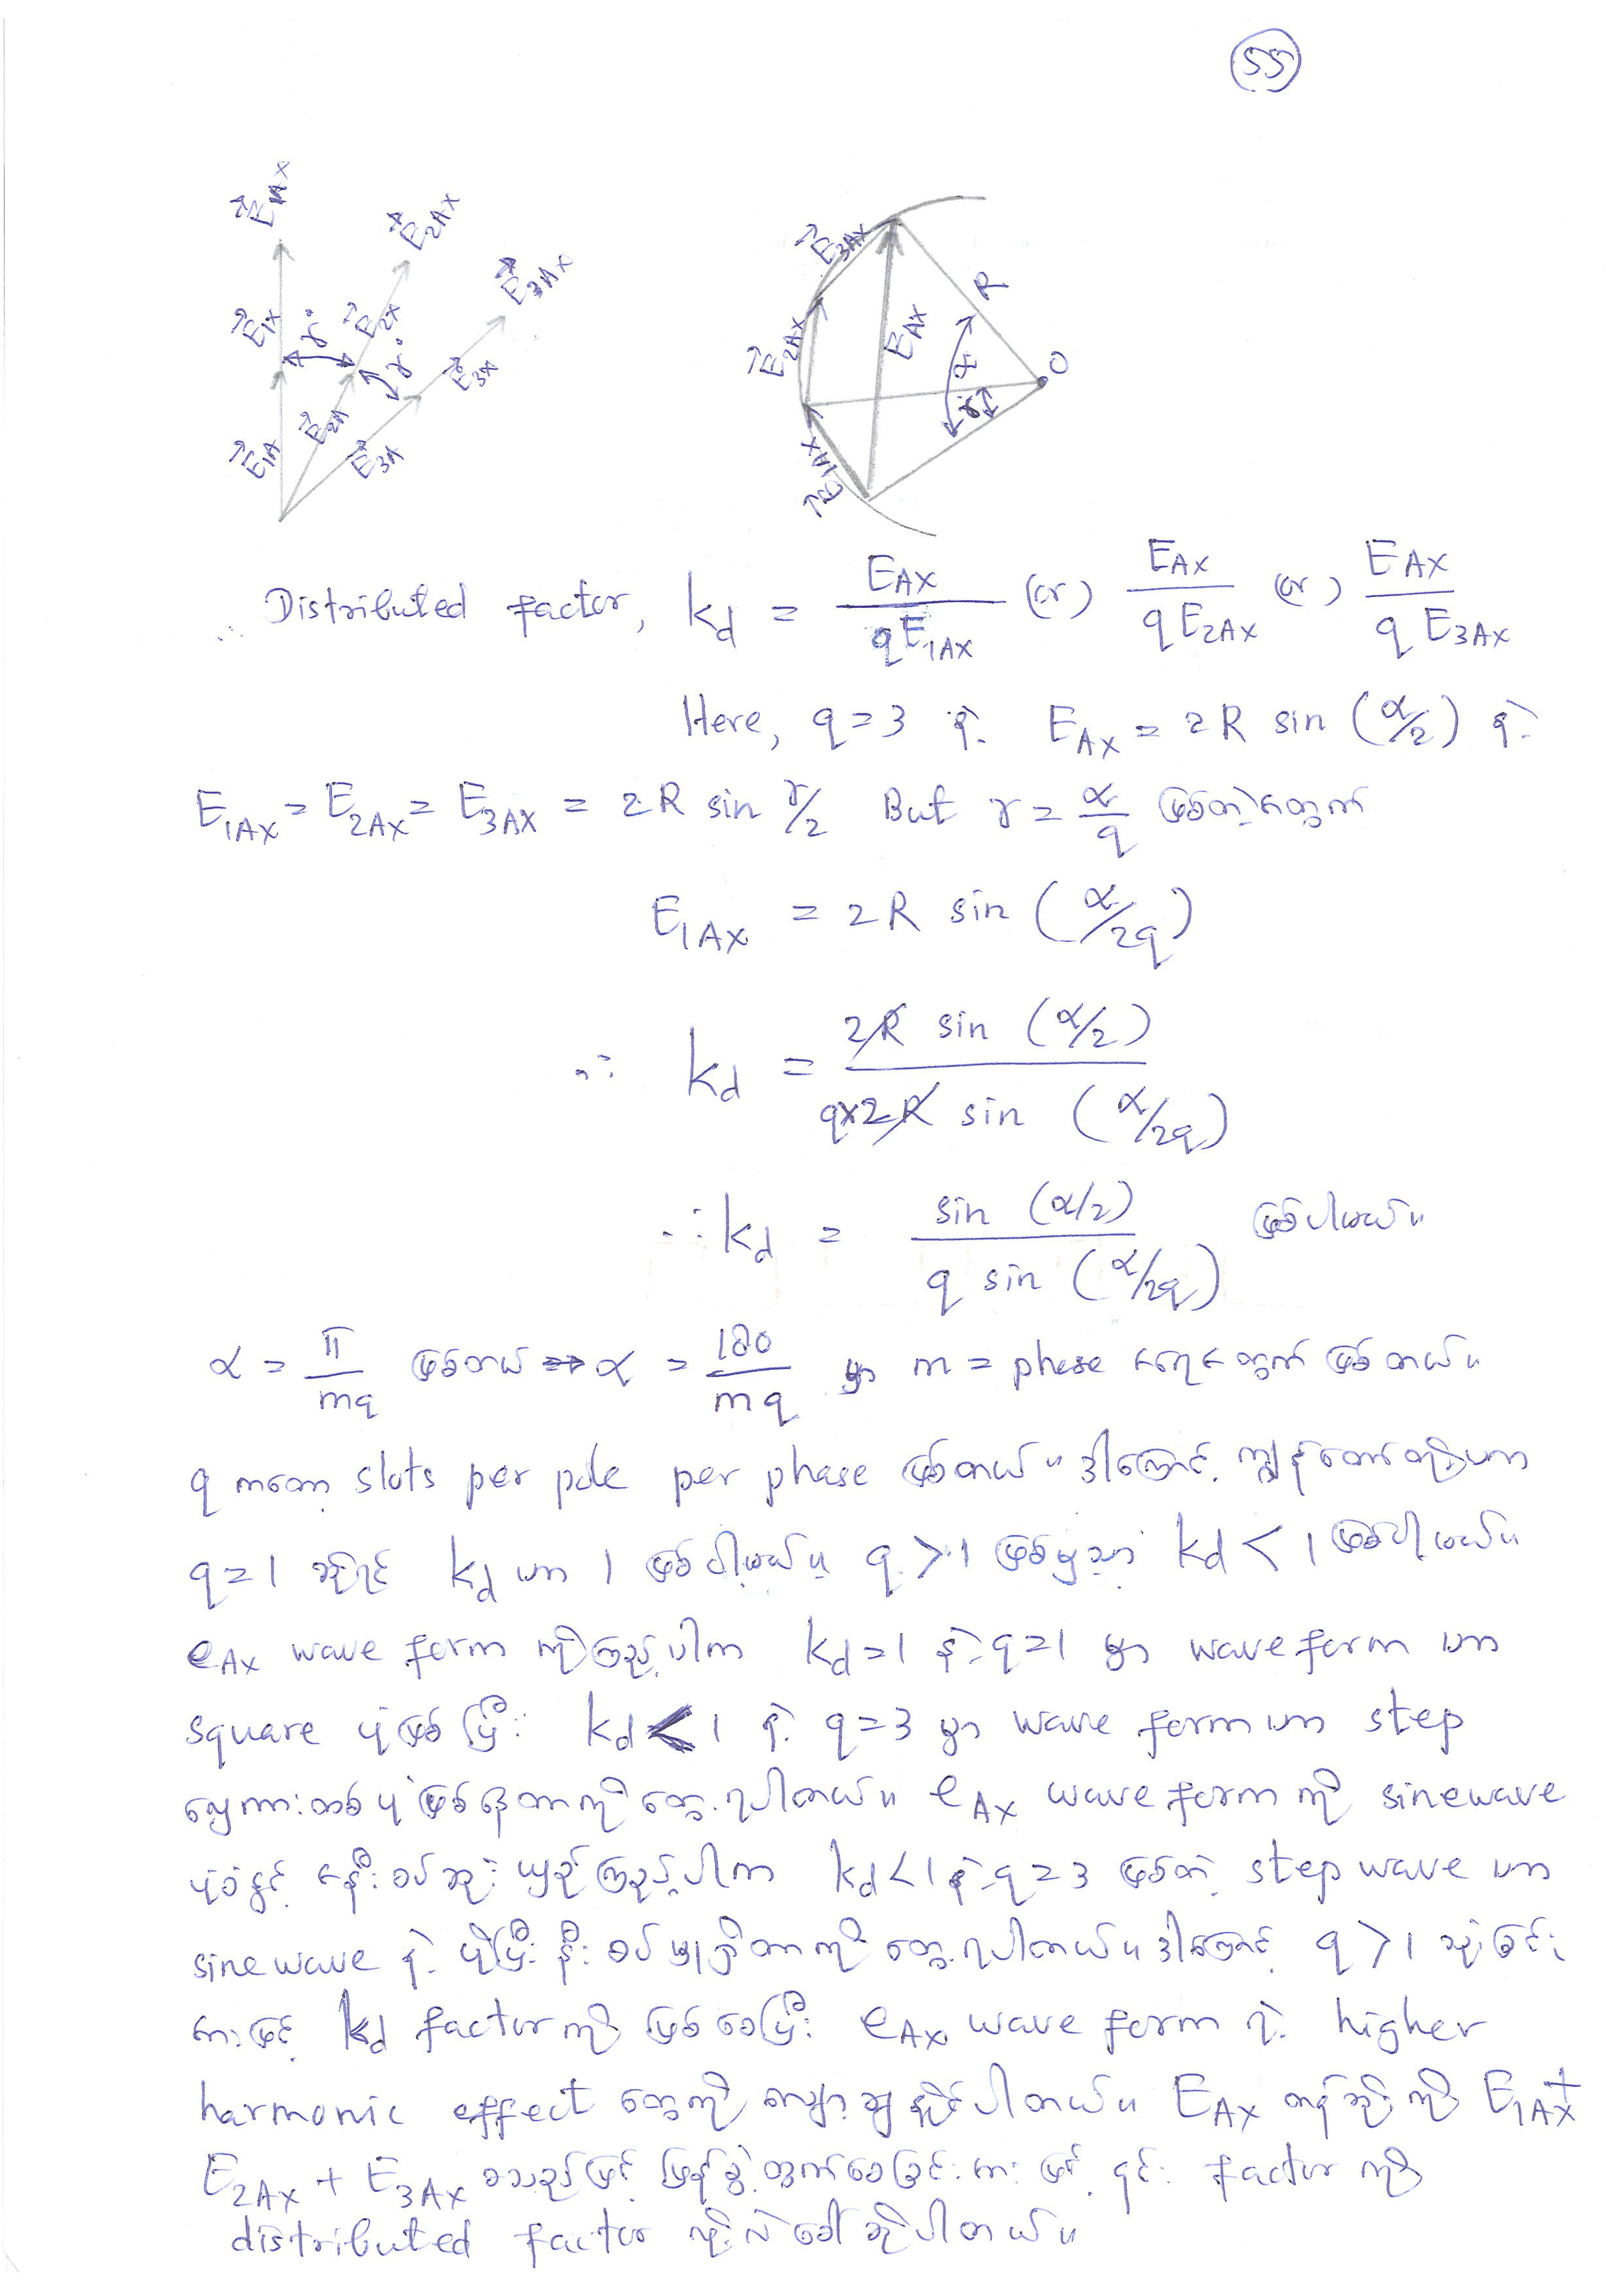 55
E⃗1AX
E⃗2AX
E⃗3AX
E⃗1X
γ°
E⃗2X
γ°
E⃗3X
E⃗1A
E⃗2A
E⃗3A
E⃗3AX
R
E⃗2AX
EAX
α
γ°
O
E⃗1AX
∴ Distributed factor, kd = EAX / qE1AX (or) EAX / qE2AX (or) EAX / qE3AX
Here, q = 3 နဲ့ EAX = 2R sin (α/2) နဲ့
E1AX = E2AX = E3AX = 2R sin γ/2 But γ = α/q ဖြစ်တဲ့အတွက်
E1AX = 2R sin (α/2q)
∴ kd = 2R sin (α/2) / q×2R sin (α/2q)
∴ kd = sin (α/2) / q sin (α/2q) ဖြစ်ပါမယ်။
α = π/mq ဖြစ်တယ် ⇒ α = 180/mq မှာ m = phase အရေအတွက် ဖြစ်တယ်။
q ကတော့ slots per pole per phase ဖြစ်တယ်။ ဒါကြောင့် ကျွန်တော်တို့ဟာ
q = 1 ဆိုရင် kd ဟာ 1 ဖြစ်ပါ့မယ်။ q > 1 ဖြစ်မှသာ kd < 1 ဖြစ်ပါ့မယ်။
eAX wave form ကိုကြည့်ပါက kd = 1 နဲ့ q = 1 မှာ wave form ဟာ
square ပုံဖြစ်ပြီး kd < 1 နဲ့ q = 3 မှာ wave form ဟာ step
လှေကားထစ်ပုံ ဖြစ်နေတာကို တွေ့ရပါတယ်။ eAX wave form ကို sinewave
ပုံစံနှင့် နှီးစပ်ဆုံး ယှဉ်ကြည့်ပါက kd < 1 နဲ့ q = 3 ဖြစ်တဲ့ step wave ဟာ
sine wave နဲ့ ပိုပြီး နီးစပ်မှုရှိတာကို တွေ့ရပါတယ်။ ဒါကြောင့် q > 1 သုံးခြင်း
အားဖြင့် kd factor ကို ဖြစ်စေပြီး eAX wave form ရဲ့ higher
harmonic effect တွေကို လျှော့ချနိုင်ပါတယ်။ EAX တန်ဘိုးကို E1AX +
E2AX + E3AX စသည်ဖြင့် ဖြန့်ခွဲတွက်စေခြင်းအားဖြင့် ၎င်း factor ကို
distributed factor လို့လဲ ခေါ်ဆိုပါတယ်။